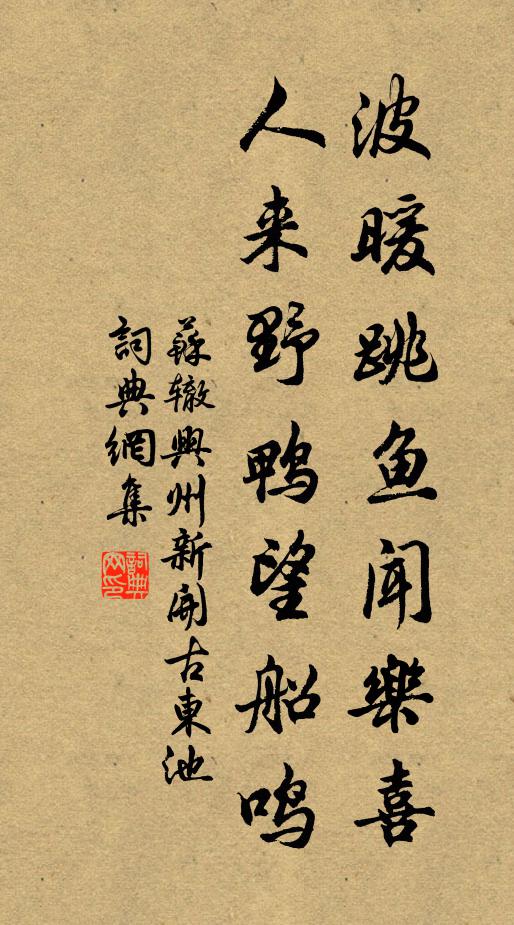 波暖跳鱼闻樂喜
人来野鸭望船鸣
蘇轍興州新開古東池
詞典網集
詞典网印